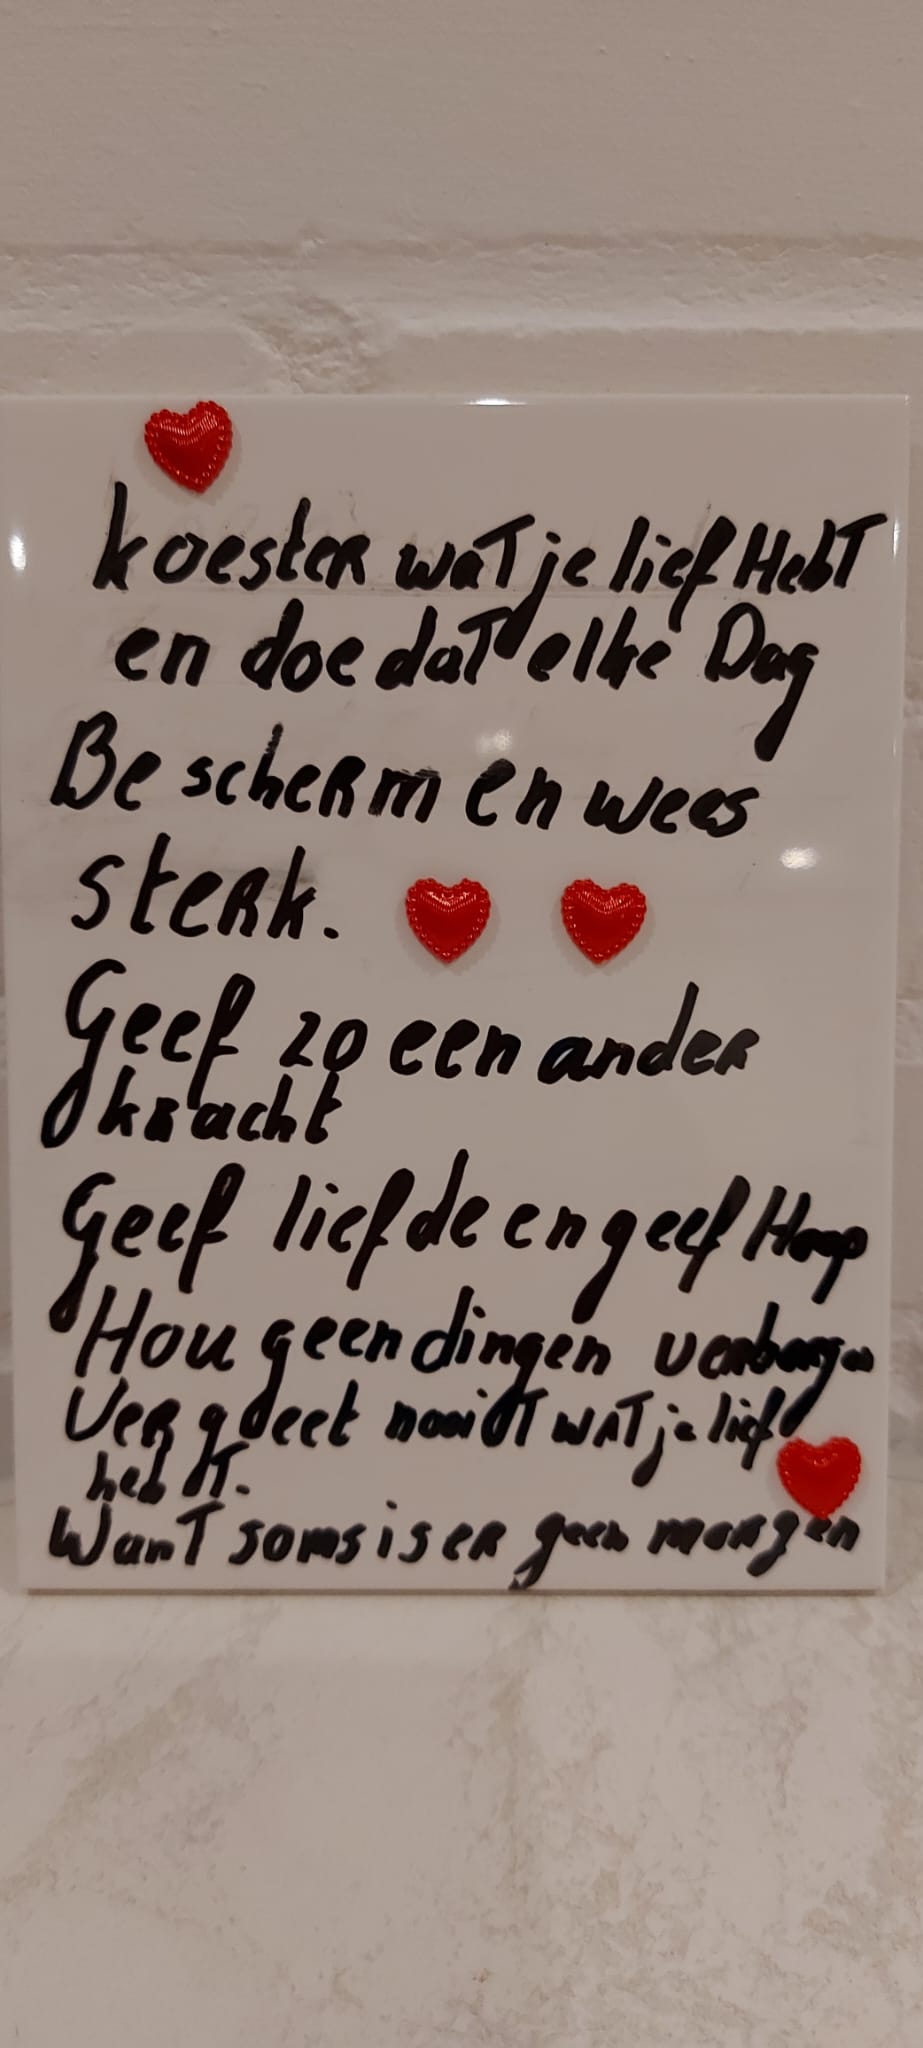 koester wat je lief Hebt
en doe dat elke Dag
Bescherm en wees
sterk.
Geef zo een ander
kracht
Geef liefde en geef Hoop
Hou geen dingen verborgen
Vergeet nooit wat je lief
hebt.
Want soms is er geen morgen